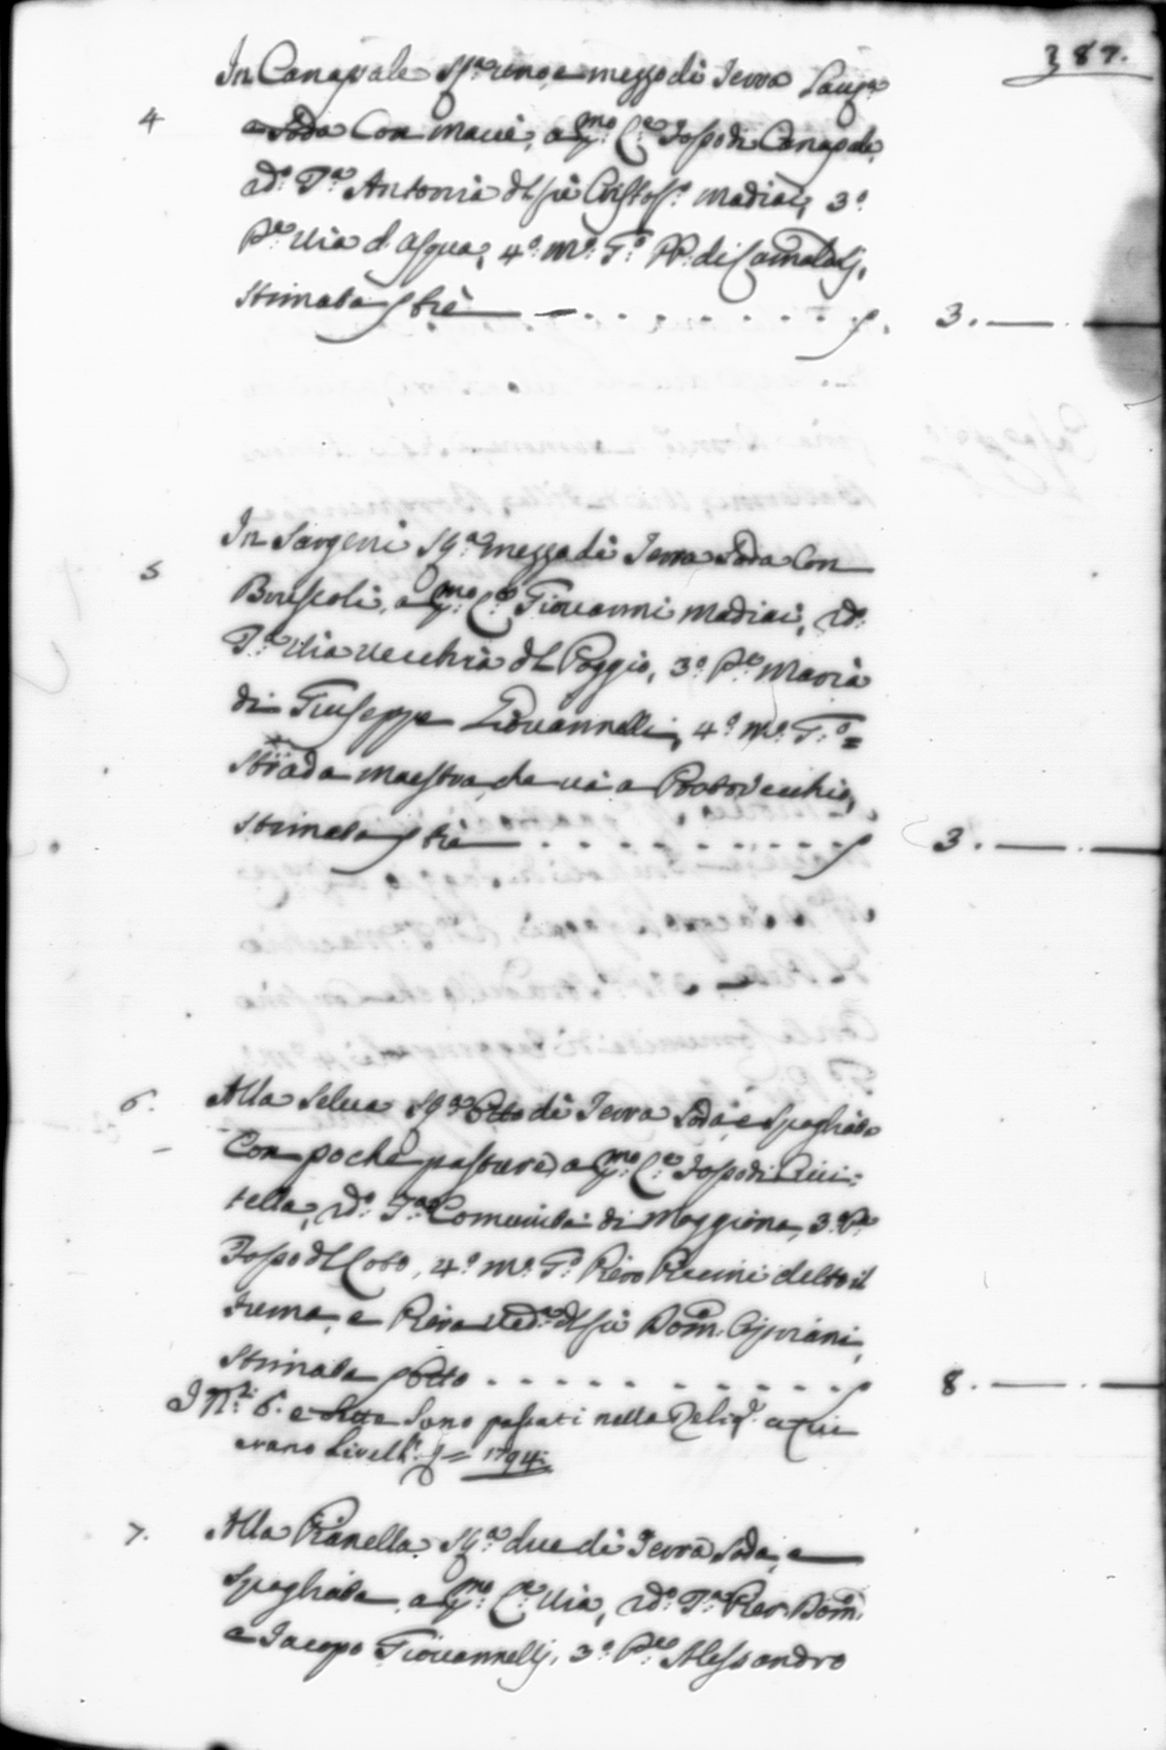 387.
In Canapale Sta. uno, e mezzo di Terra
4
e Soda Con macie, a pmo. Ce. Fosso di Canapale,
2do. Ta. Antonia del fù Cristofo. Madiai, 3o.
Pe. Via d'Acqua, 4o. Mo. To. PP. di Camaldoli,
Stimata p tre — . . . . . . . . . p. 3. —
In Sargeni Sta. mezza di Terra Soda Con
5
Bruscoli, a pmo. Ce. Giovanni Madiai, 2do.
Ta. Via vecchia del Poggio, 3o. Pe. Maria
di Giuseppe Giovannelli, 4o. Mo. To. =
Strada maestra, che và a Pratovecchio,
Stimata p tre . . . . . . . . . p 3. —
6. Alla Selva Sta. Otto di Terra Soda, e Spogliata
Con poche pasture, a pmo. Ce. Fosso di Civi=
tella, 2do. Ta. Comunità di Moggiona, 3o. Pe.
Fosso del Coto, 4o. Mo. To. Piero Piccini detto il
e Piera Veda. del fù Domco. Cipriani,
Stimata p Otto . . . . . . . . . . p 8. —
I Nri. 6. e Sette Sono passati nella a Cui
erano Livelli. p = 1794.
7. Alla Pianella Sta. due di Terra Soda, e
Spogliata, a pmo. Ce. Via, 2do. Ta. Pier Domco.
e Iacopo Giovannelli, 3o. Pe. Alessandro